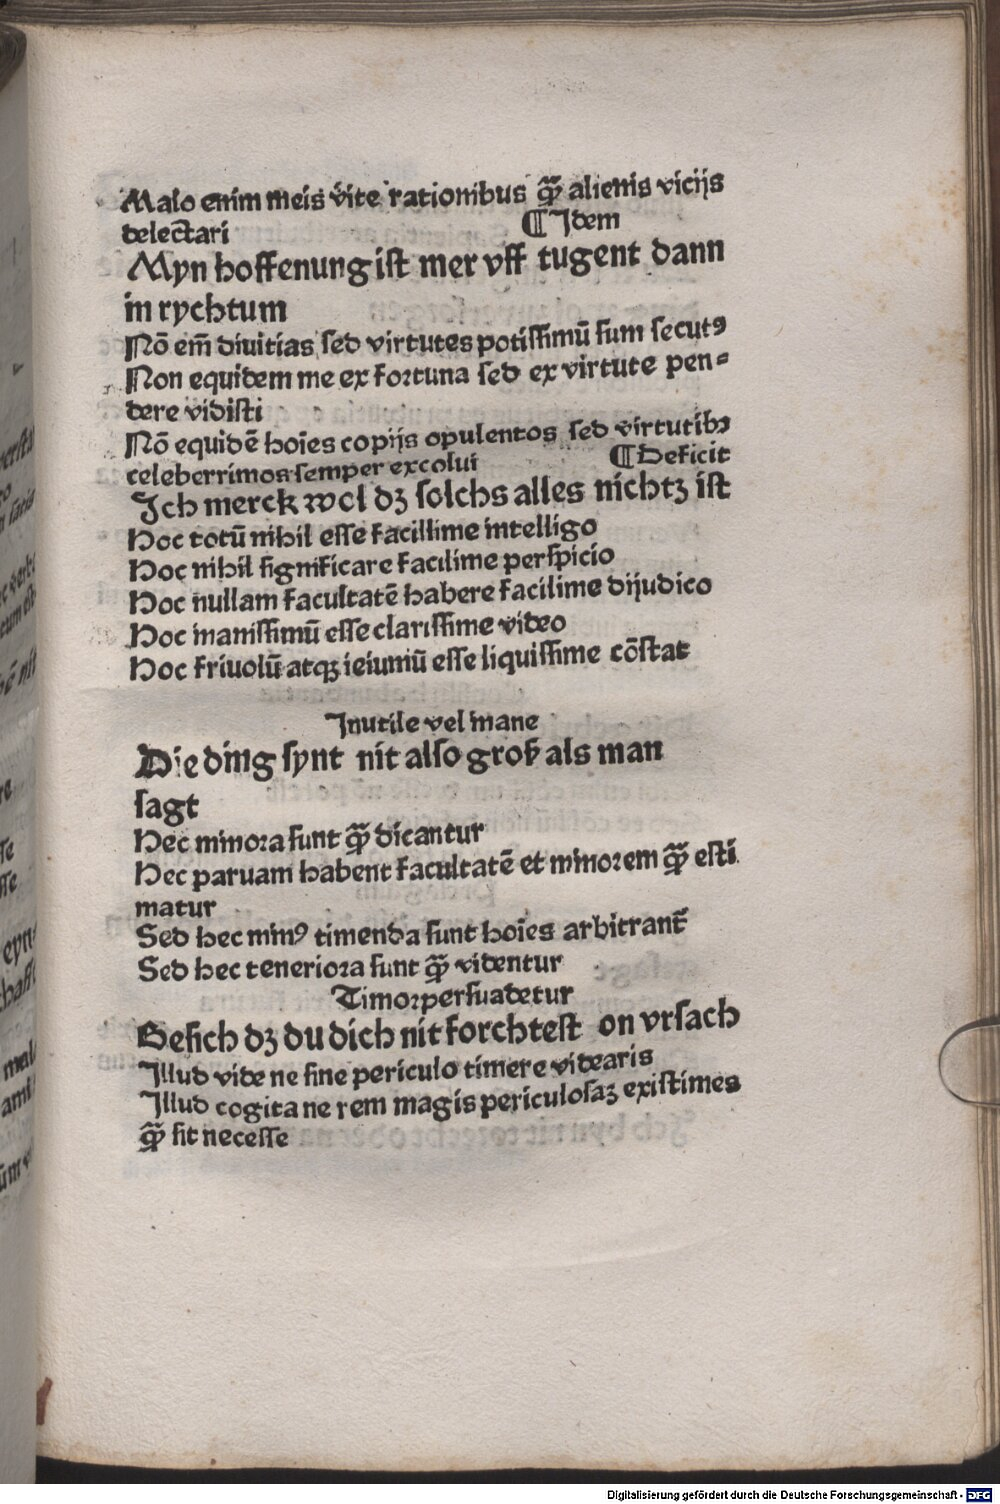 Malo enim meis vite rationibus q̃ꝫ alienis vicijs
delectari ¶ Idem
Myn hoffenung ist mer vff tugent dann
in rychtum
Nō em̄ diuitias sed virtutes potissimū sum secutꝰ
Non equidem me ex fortuna sed ex virtute pen⸗
dere vidisti
Nō equidē hoīes copijs opulentos sed virtutibꝫ
celeberrimos semper excolui ¶ Deficit
Ich merck wol dꝫ solchs alles nichtꝫ ist
Hoc totū nihil esse facillime intelligo
Hoc nihil significare facilime perspicio
Hoc nullam facultatē habere facilime dijudico
Hoc inanissimū esse clarissime video
Hoc friuolū atqꝫ ieiunū esse liquissime cōstat
Inutile vel inane
Die ding synt nit also groß als man
sagt
Hec minora sunt q̃ꝫ dicantur
Hec paruam habent facultatē et minorem q̃ꝫ esti
matur
Sed hec minꝰ timenda sunt hoīes arbitrant᷑
Sed hec teneriora sunt q̃ꝫ videntur
Timor persuadetur
Besich dꝫ du dich nit forchtest on vrsach
Illud vide ne sine periculo timere videaris
Illud cogita ne rem magis periculosaꝫ existimes
q̃ꝫ sit necesse
Digitalisierung gefördert durch die Deutsche Forschungsgemeinschaft - DFG